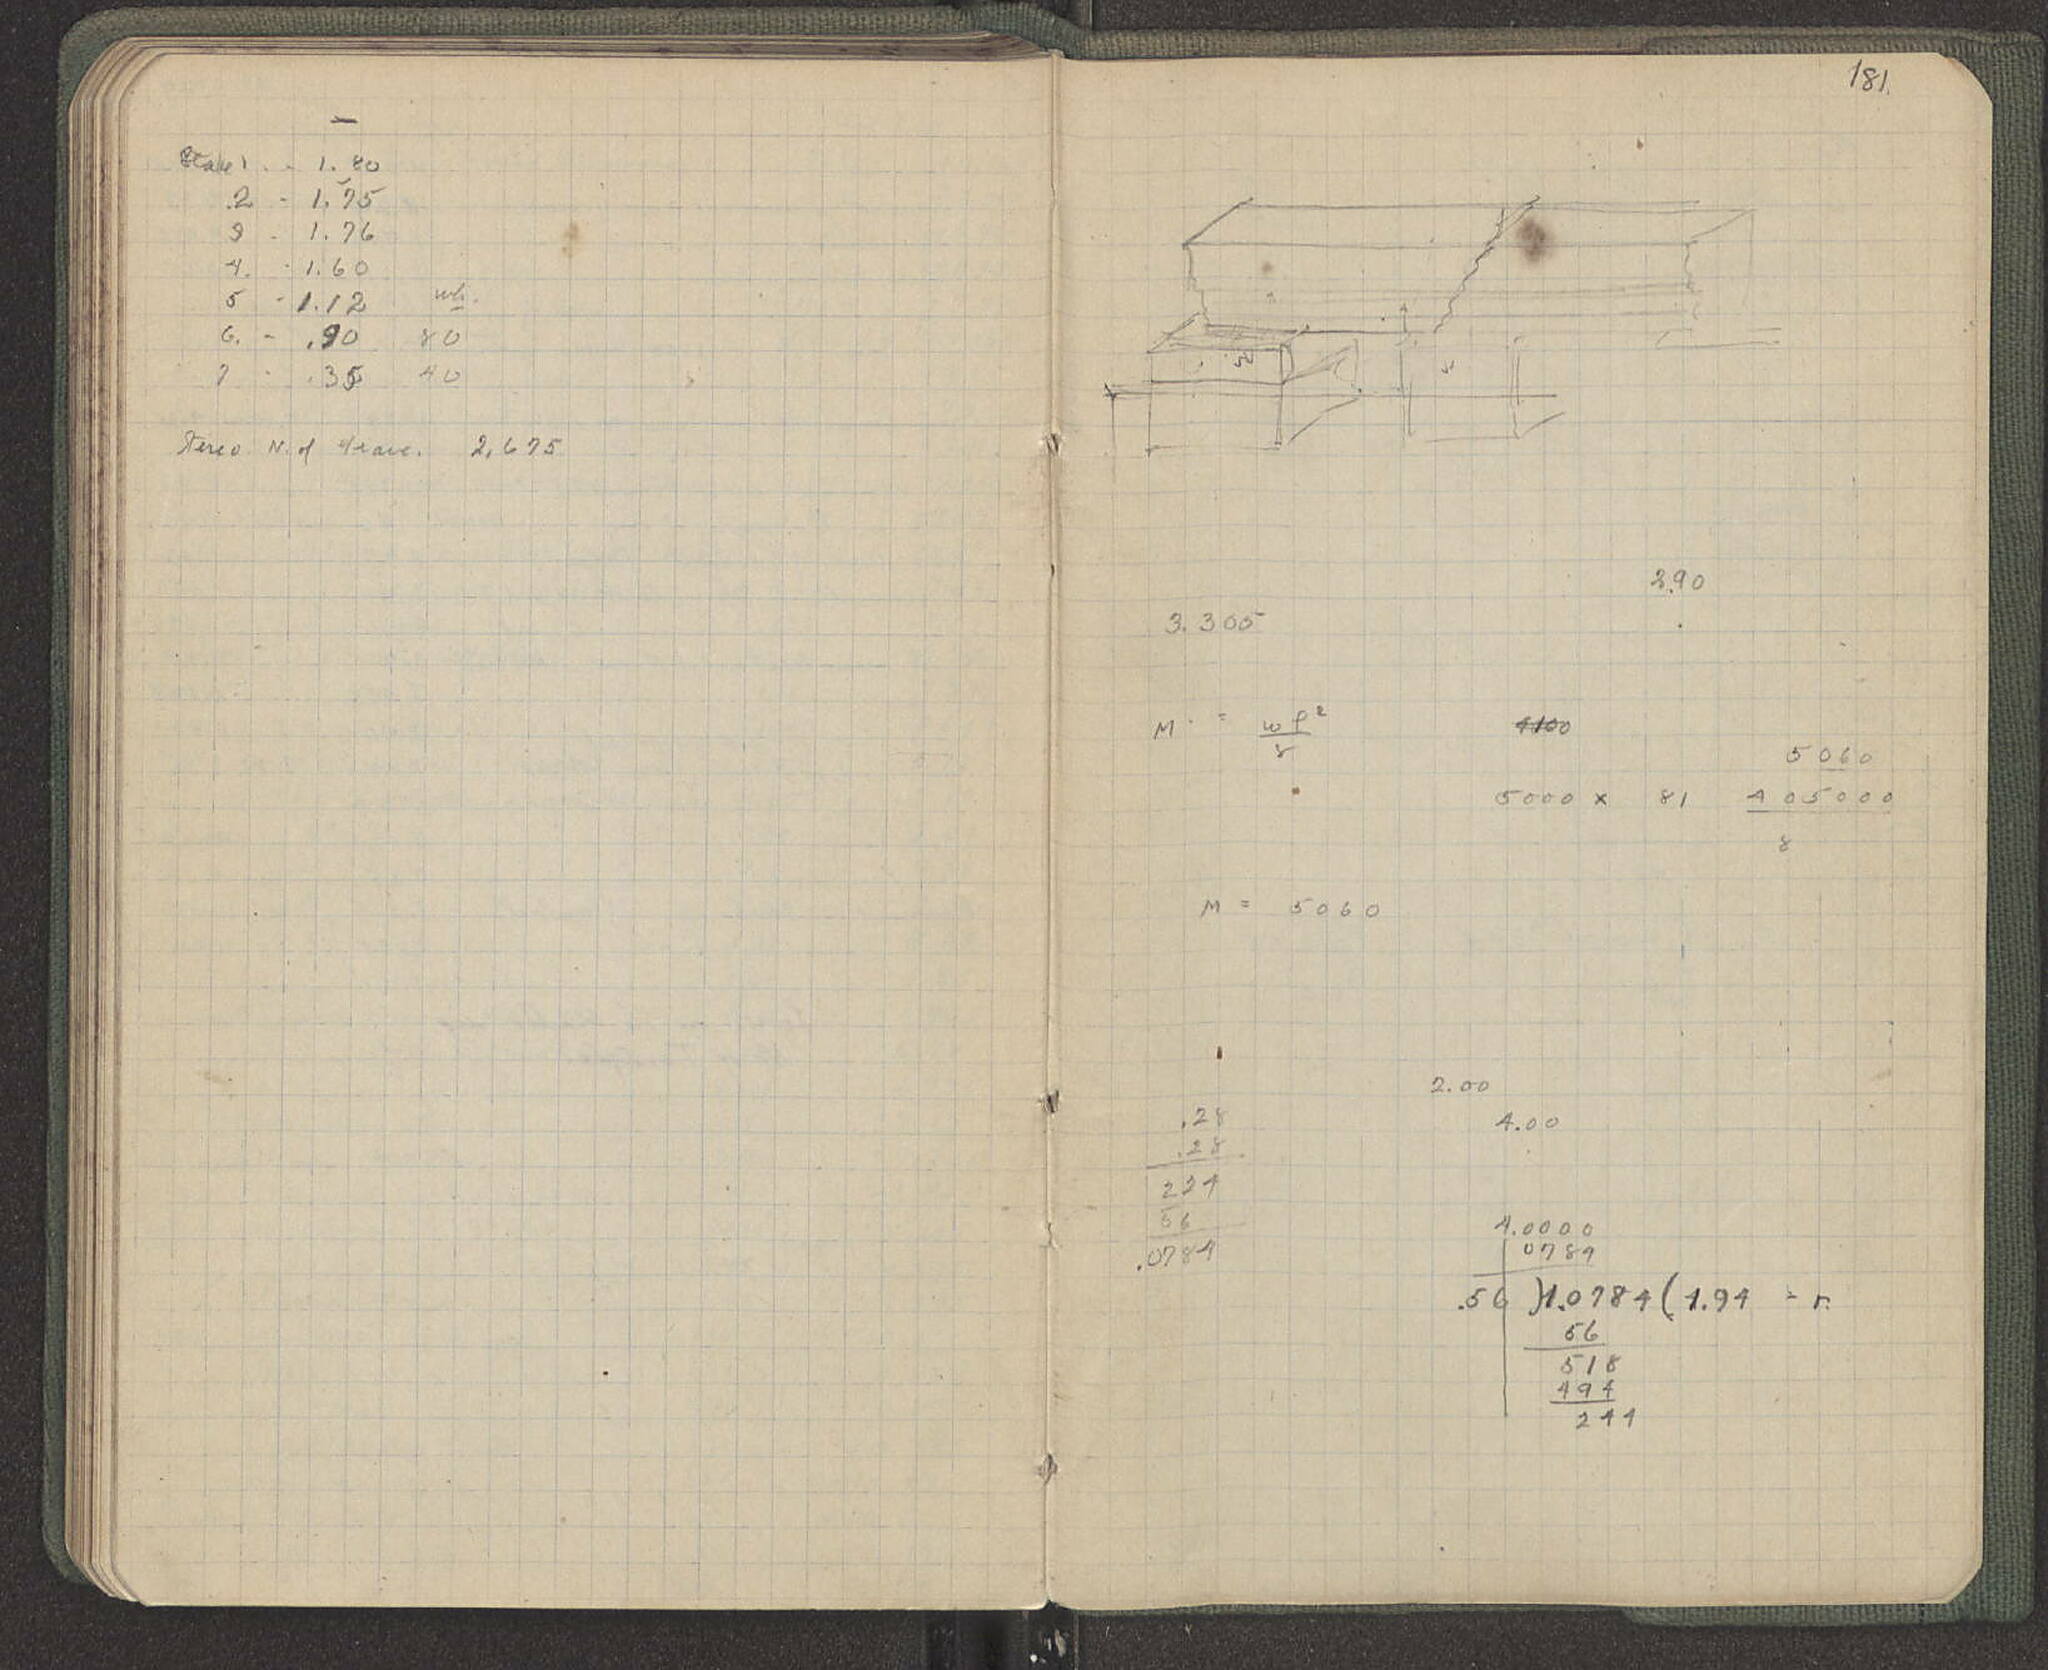 Stave 1 - 1.80
2 - 1.75
3 - 1.76
4. - 1.60
5 - 1.12 wh.
6. - .90 80
7 - .35 40
Stereo N. of stave. 2,675
181.
2.90
3.305
M = wl²
8
4100
5060
5000 x 81 405000
8
M = 5060
2.00
4.00
.28
.28
224
56
.0784
4.0000
0784
.56 ) 1.0784 ( 1.94 = r.
56
518
494
244